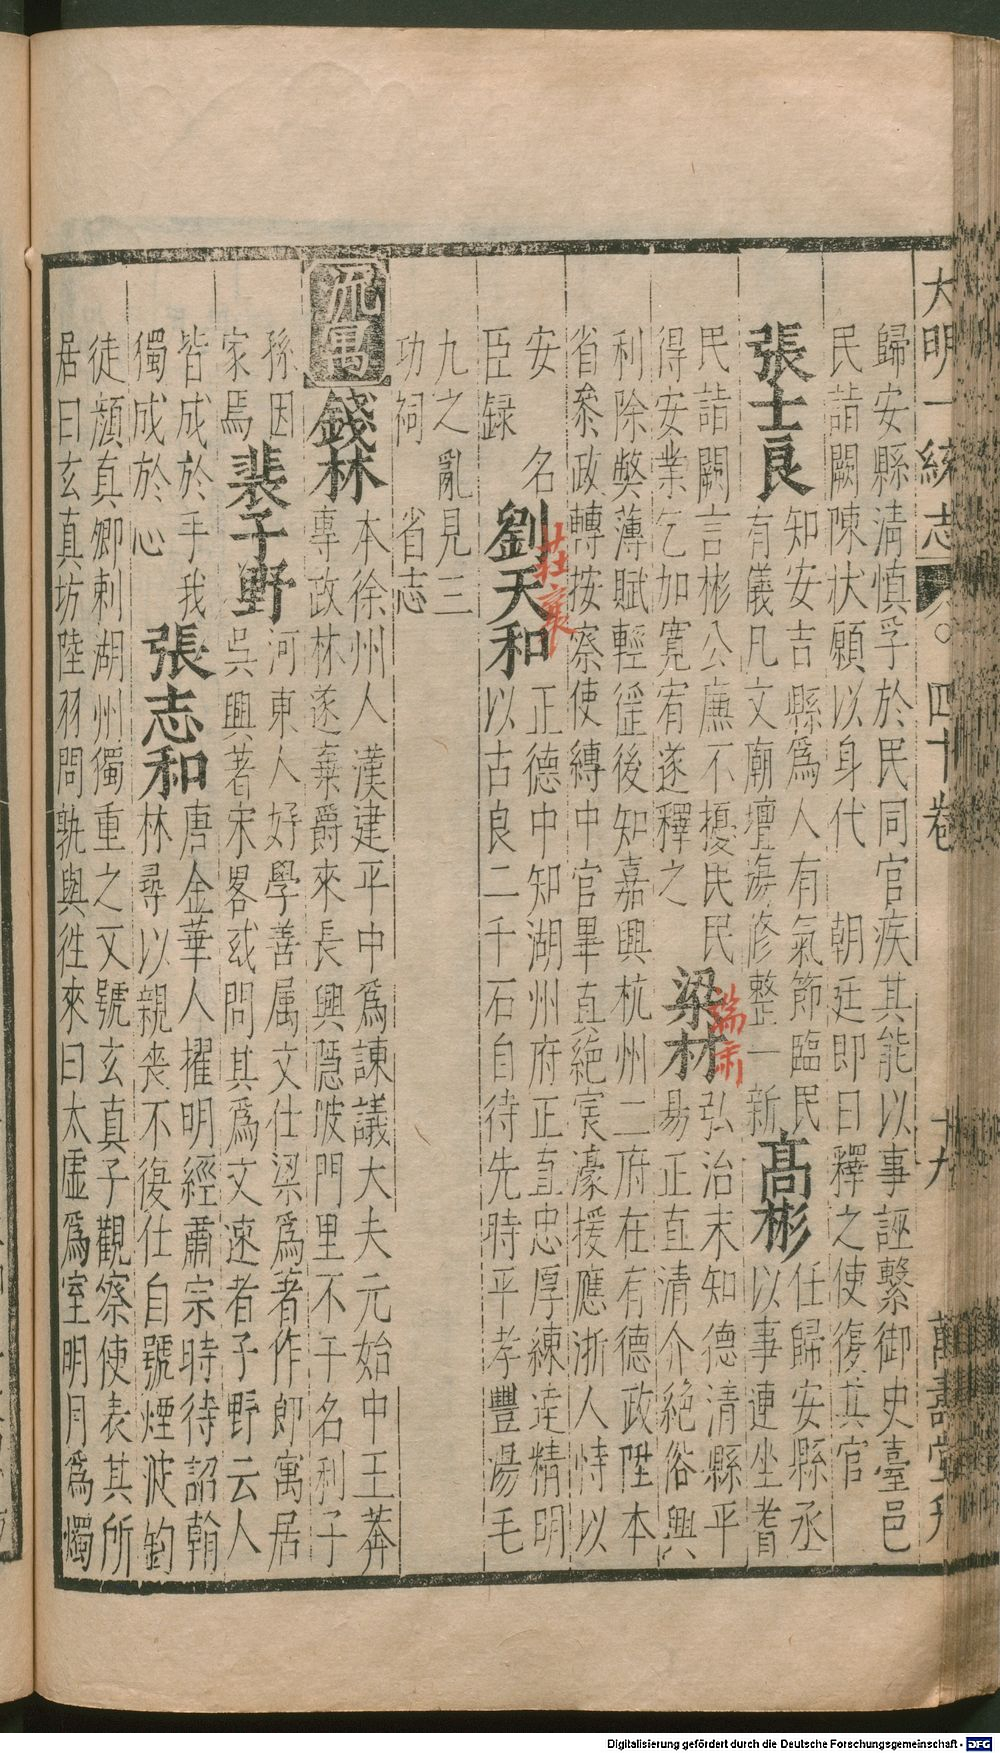 大明一統志 四十卷 十九 萬壽堂刋
歸安縣淸慎孚於民同官疾其能以事誣繫御史臺邑
民詣闕陳狀願以身代 朝廷即日釋之使復其官
張士良
知安吉縣爲人有氣節臨民
有儀凡文廟壇𤩴修整一新
高彬
任歸安縣丞
以事連坐耆
民詣闕言彬公廉不擾民民
得安業乞加寬宥遂釋之
梁材
端肅
弘治末知德清縣平
易正直清介絶俗興
利除弊薄賦輕徭後知嘉興杭州二府在有德政陞本
省叅政轉按察使縛中官畢直絕宸濠援應浙人恃以
安 名
臣録
劉天和
莊襄
正德中知湖州府正直忠厚練達精明
以古良二千石自待先時平孝豐湯毛
九之亂見三
功祠 省志
流寓
錢林
本徐州人漢建平中爲諫議大夫元始中王莽
專政林遂棄爵來長興隱陂門里不干名利子
孫因
家焉
裴子野
河東人好學善属文仕梁爲著作郎寓居
吳興著宋畧或問其爲文速者子野云人
皆成於手我
獨成於心
張志和
唐金華人擢明經肅宗時待詔翰
林尋以親喪不復仕自號煙波釣
徒顔真卿刺湖州獨重之又號玄真子觀察使表其所
居曰玄真坊陸羽問孰與徃來曰太虛爲室明月爲燭
Digitalisierung gefördert durch die Deutsche Forschungsgemeinschaft - DFG